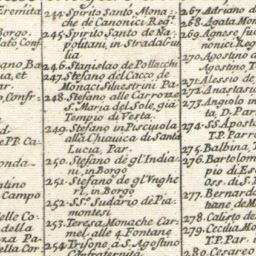 Eremita
Borgo.
ato Conf
ano Ba
a, et
ar
Confr
di
e PP. Ca
onda
ntino
Campo
elle Co
della
za Pa
della
244. Spirito Santo Mona
che di Canonici Reg.ri
245. Spirito Santo de Na
politani, in Strada Iulia
246. Stanislao de Pollacchi
247. Stefano del Cacco de
Monaci Silvestrini Pa.
248. Stefano alle Carrozze
S. Maria del Sole, già
Tempio di Vesta.
249. Stefano in Pisciuola
alla Chiavica di Santa
Lucia, Par.
250. Stefano de gl'Indiani, in Borgo
251. Stefano de gl'Ungheri, in Borgo
252. SS.o Sudario de Pia
montesi
253. Teresa, Monache Car
mel. alle 4. Fontane
254. Trifone, à S. Agostino
Confraternità
267. Adriano
268. Agata Mon
269. Agnese fuo
nonici Reg
270. Agostino
Agostino
271. Alessio de
272. Anastasia
273. Angiolo in
ta, D. Par
274. SS. Aposto
T.P. Parr
275. Balbina, T
276. Bartolom
pio di Es
Oss. di S.
277. Bernard
tiane de M
278. Calisto de
279. Cecilia Mo
T.P. Par. i
280. Cesareo